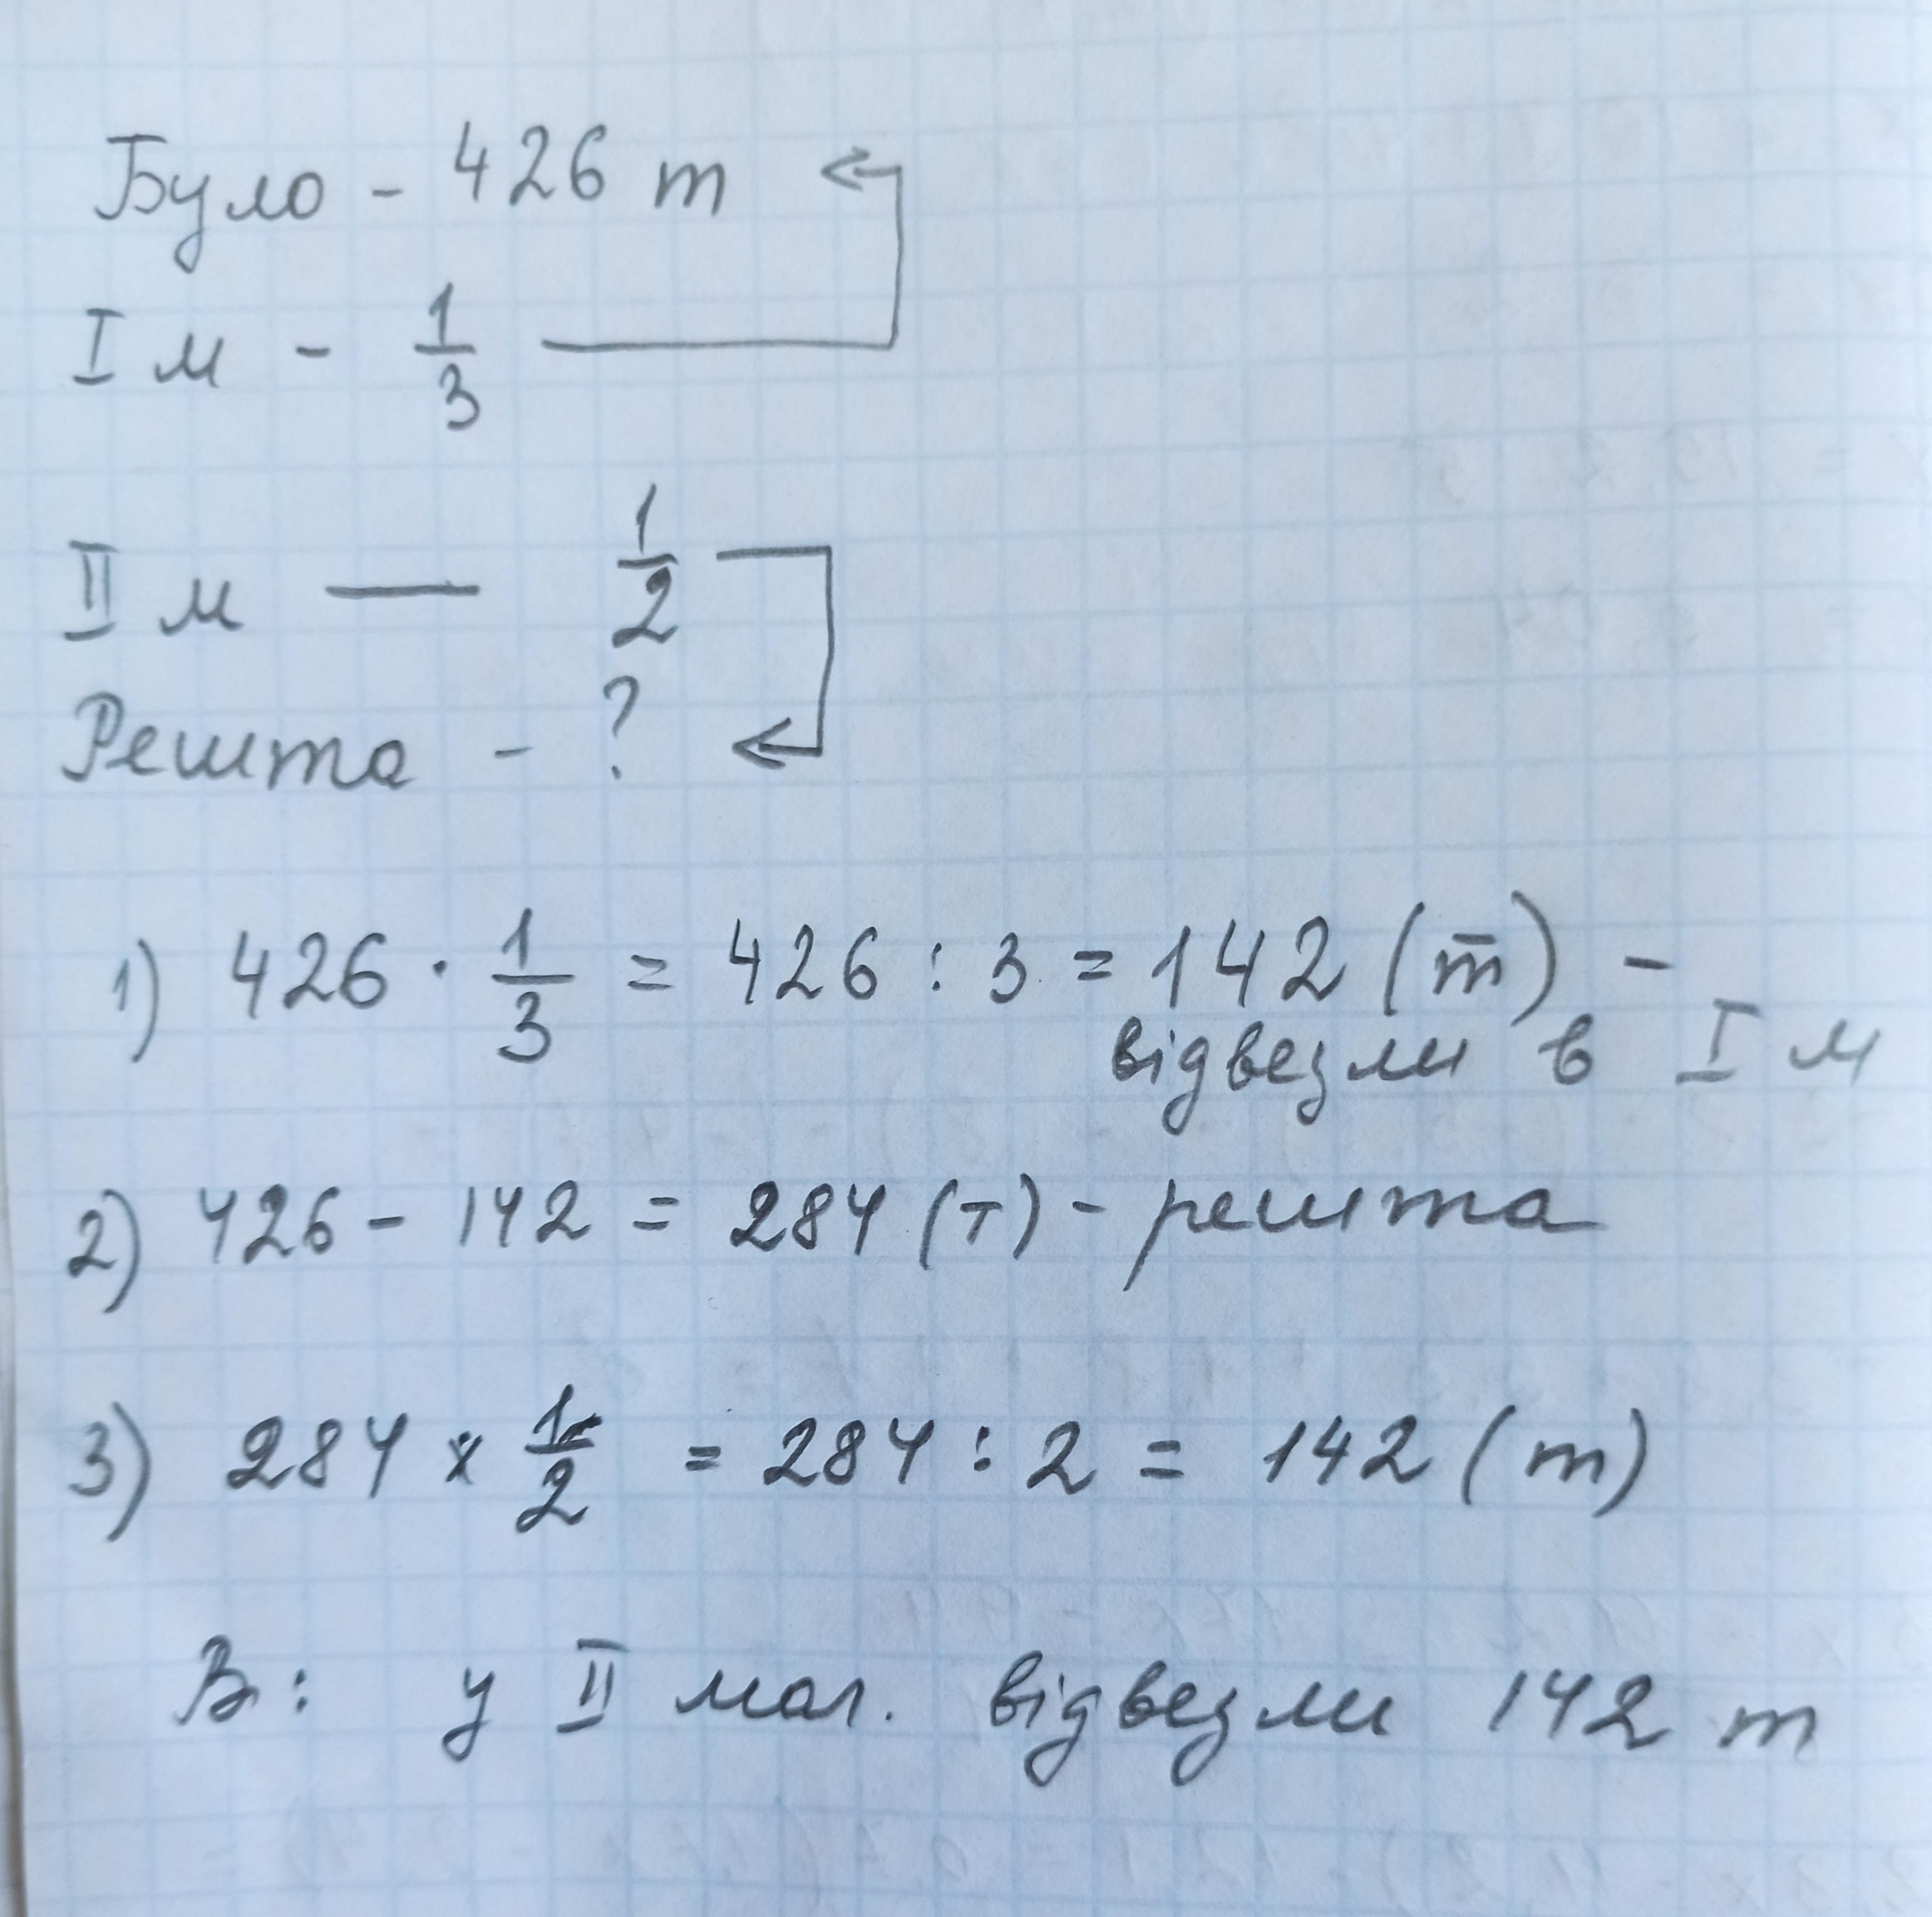 Було - 426 т
I м - 1/3
II м — 1/2
Решта - ?
1) 426 · 1/3 = 426 : 3 = 142 (т) -
відвезли в I м
2) 426 - 142 = 284 (т) - решта
3) 284 × 1/2 = 284 : 2 = 142 (т)
В: у II маг. відвезли 142 т